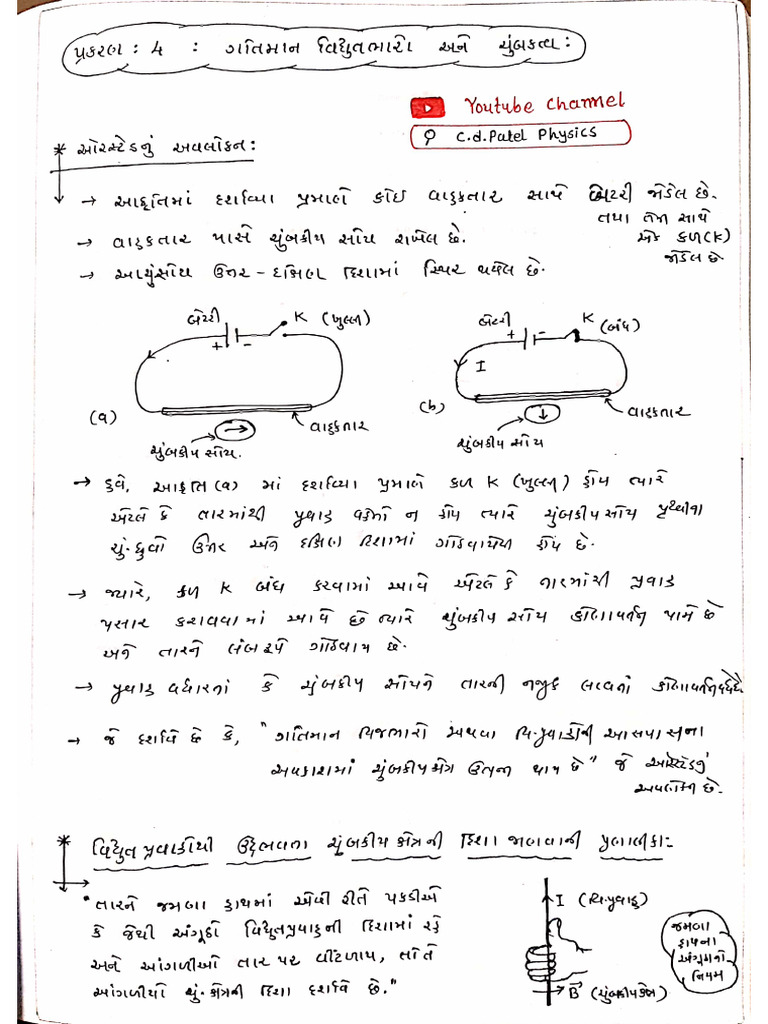 પ્રકરણ : 4 : ગતિમાન વિદ્યુતભારો અને ચુંબકત્વ :
Youtube Channel
C.d.Patel Physics
* ઓરસ્ટેડનું અવલોકન :
→ આકૃતિમાં દર્શાવ્યા પ્રમાણે કોઈ વાહકતાર સાથે બેટરી જોડેલ છે.
તથા તેમ સાથે
એક કળ(K)
જોડેલ છે
→ વાહકતાર પાસે ચુંબકીય સોય રાખેલ છે.
→ આ ચું.સોય ઉત્તર - દક્ષિણ દિશામાં સ્થિર થયેલ છે.
બેટરી
+ -
K (ખુલ્લી)
(a)
વાહકતાર
ચુંબકીય સોય.
બેટરી
+ -
K
(બંધ)
I
(b)
વાહકતાર
ચુંબકીય સોય
→ હવે, આકૃતિ (a) માં દર્શાવ્યા પ્રમાણે કળ K (ખુલ્લી) હોય ત્યારે
એટલે કે તારમાંથી પ્રવાહ વહેતો ન હોય ત્યારે ચુંબકીય સોય પૃથ્વીના
ચું.ધ્રુવો ઉત્તર અને દક્ષિણ દિશામાં ગોઠવાયેલી હોય છે.
→ જ્યારે, કળ K બંધ કરવામાં આવે એટલે કે તારમાંથી પ્રવાહ
પસાર કરાવવામાં આવે છે ત્યારે ચુંબકીય સોય કોણાવર્તન પામે છે
અને તારને લંબરૂપે ગોઠવાય છે.
→ પ્રવાહ વધારતાં કે ચુંબકીય સોયને તારની નજીક લાવતાં કોણાવર્તન વધે છે
→ જે દર્શાવે છે કે, "ગતિમાન વિજભારો અથવા વિ.પ્રવાહોની આસપાસના
અવકાશમાં ચુંબકીયક્ષેત્ર ઉત્પન્ન થાય છે" જે ઓરસ્ટેડનું
અવલોકન છે.
* વિદ્યુત પ્રવાહોથી ઉદ્ભવતા ચુંબકીય ક્ષેત્રની દિશા જાણવાની પ્રણાલીકા:-
"તારને જમણા હાથમાં એવી રીતે પકડીએ
કે જેથી અંગૂઠો વિદ્યુતપ્રવાહની દિશામાં રહે
અને આંગળીઓ તાર પર વીંટળાય, તો તે
આંગળીયો ચું.ક્ષેત્રની દિશા દર્શાવે છે."
I (વિ.પ્રવાહ)
B⃗ (ચુંબકીયક્ષેત્ર)
જમણા
હાથના
અંગૂઠાનો
નિયમ